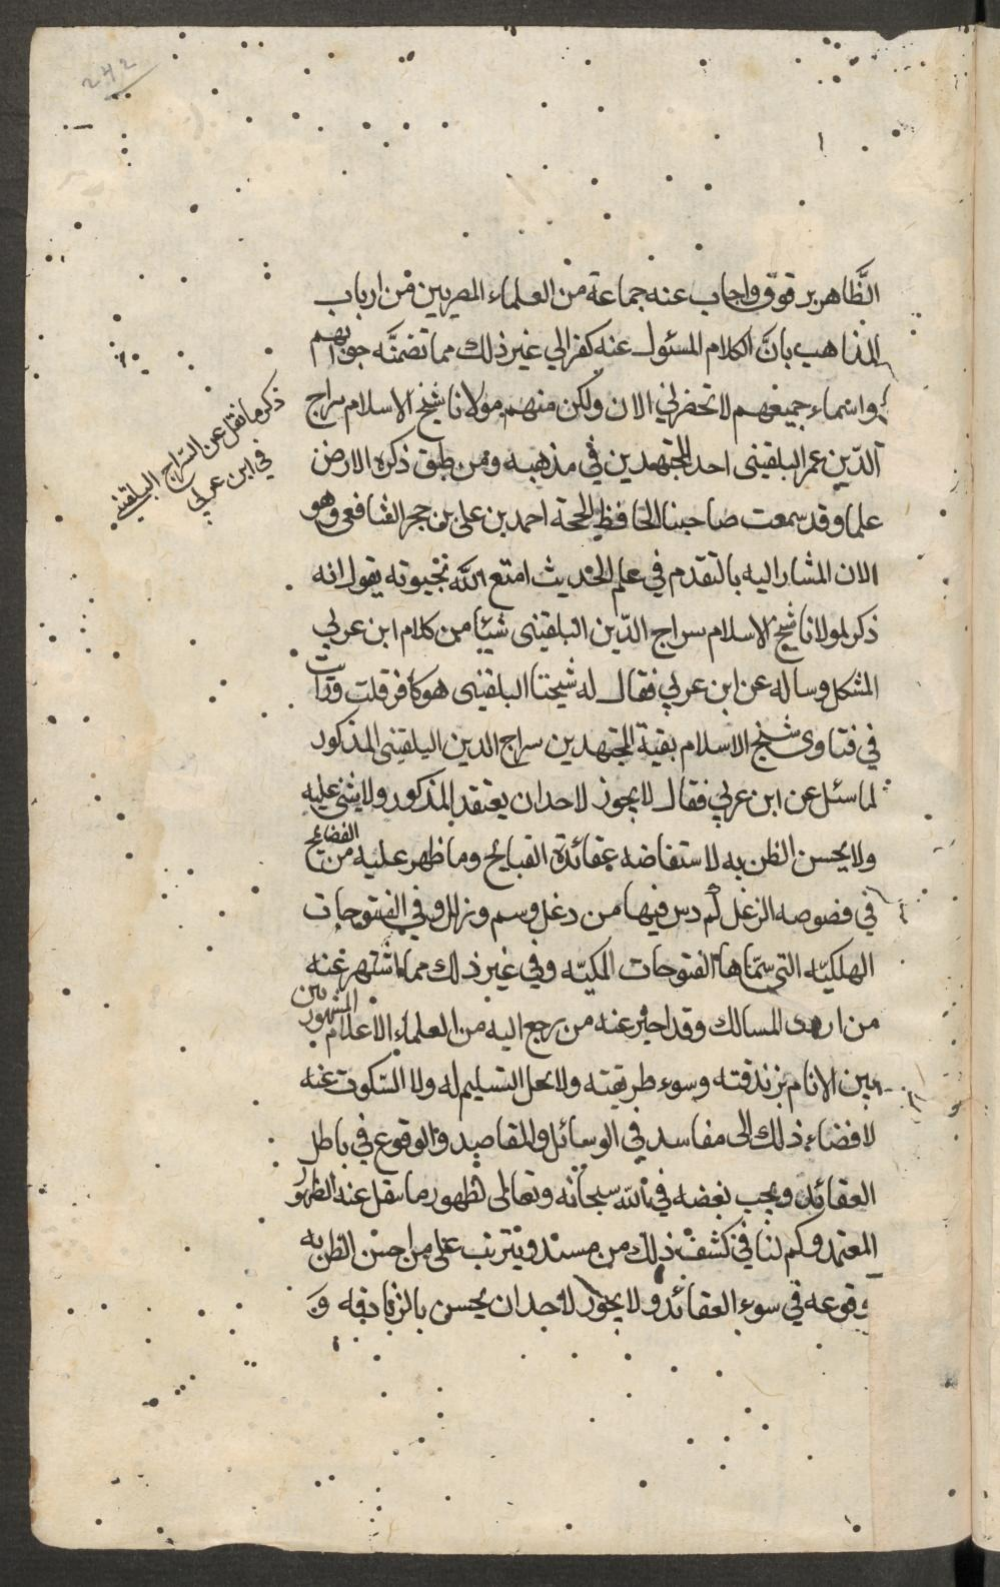 ٢٤٢
الظَّاهر برقوق واجاب عنه جماعة من العلماء المصريين من ارباب
المذاهب بانَّ الكلام المسئول عنه كفر الي غير ذلك مما تضمنَّه جوابهم
واسماء جميعهم لا تحضرني الان ولكن منهم مولانا شيخ الاسلام سراج
الدّين عمر البلقيني احد المجتهدين في مذهبه ومن طبق ذكره الارض
علما وقد سمعت صاحبنا الحافظ الحجة احمد بن علي بن حجر الشافعي وهو
الان المشار اليه بالتقدم في علم الحديث امتع الله بحيوته يقول انه
ذكر لمولانا شيخ الاسلام سراج الدّين البلقيني شيئا من كلام ابن عربي
المشكل وساله عن ابن عربي فقال له شيخنا البلقيني هو كافر قلت ورايت
في فتاوى شيخ الاسلام بقية المجتهدين سراج الدين البلقيني المذكور
لما سئل عن ابن عربي فقال لا يجوز لاحد ان يعتقد المذكور ولا يثني عليه
ولا يحسن الظن به لاستفاضه عقائدة القبايح وما ظهر عليه من الفضائح
في فصوصه الزغل كم دس فيها من دغل وسم وزلل وفي الفتوحات
الهلكيّه التي سمّاها الفتوحات المكيّه وفي غير ذلك مما اشتهر عنه
من اردى المسالك وقد اخبر عنه من يرجع اليه من العلماء الاعلام المشهورين
بين الانام بزندقته وسوء طريقته ولا يحل التسليم له ولا السّكوت عنه
لافضاء ذلك الى مفاسد في الوسائل والمقاصد والوقوع في باطل
العقائد ويجب بغضه في الله سبحانه وتعالى لظهور ما نقل عنه الظهور
المعتمد وكم لنا في كشف ذلك من مستند ويترتب على من احسن الظن به
وقوعه في سوء العقائد ولا يجوز لاحد ان يحسن بالزنادقه وَ
ذكر ما نقل عن السّراج البلقيني
في ابن عربي